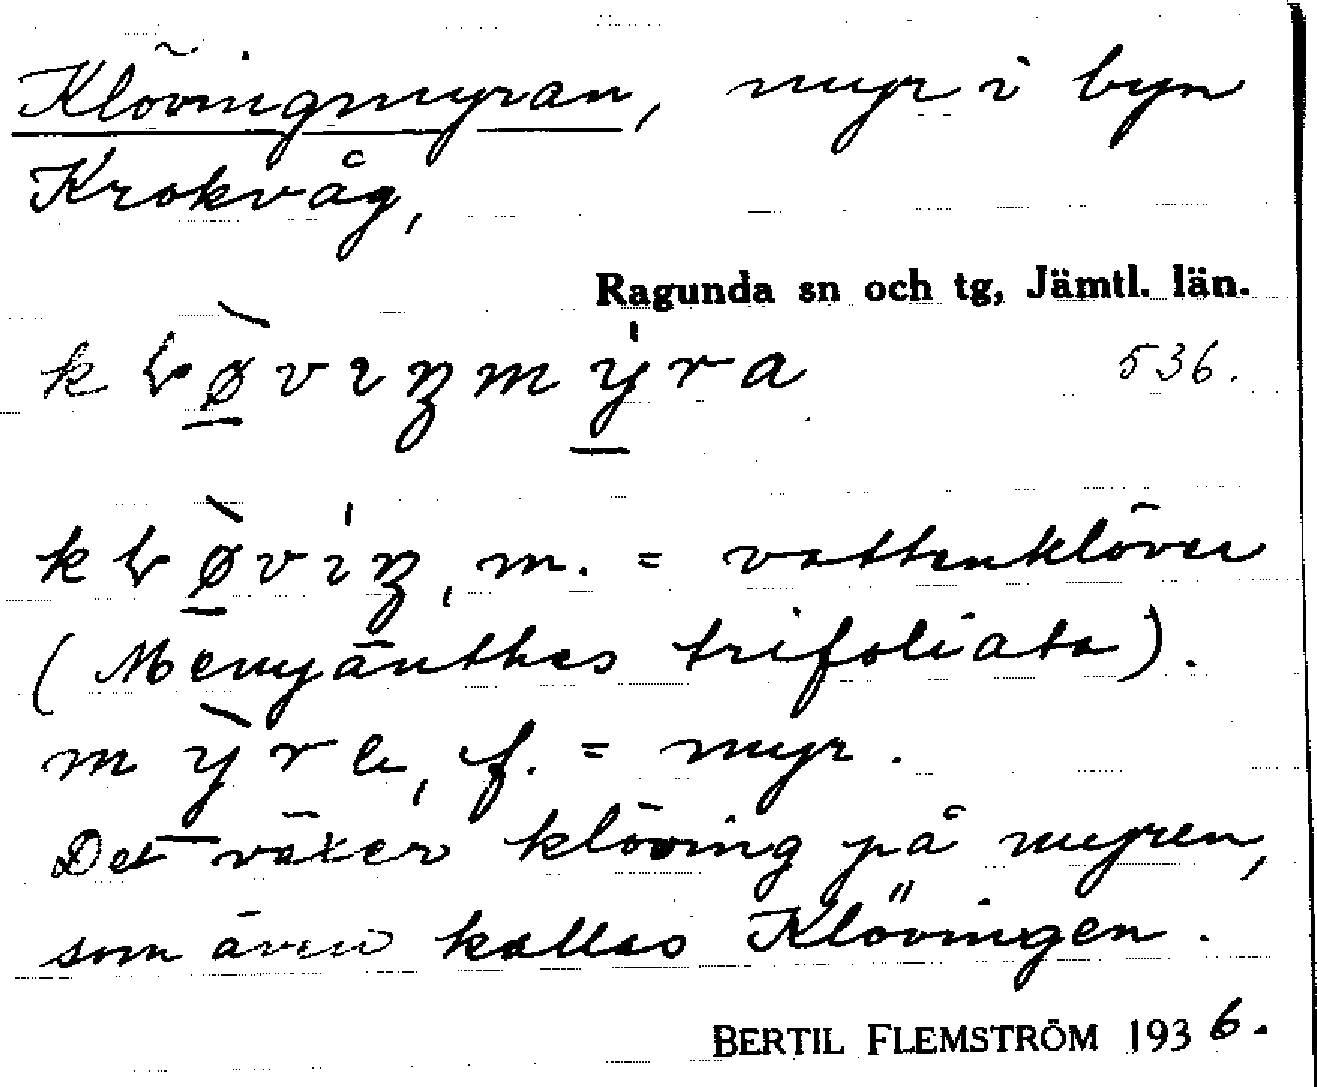 Klövingmyran, myr i byn
Krokvåg,
Ragunda sn och tg, Jämtl. län.
536.
m. = vattenklöver
(Menyänthes trifoliata).
f. = myr.
Det växer klöving på myren,
som även kallas Klövingen.
BERTIL FLEMSTRÖM 1936.